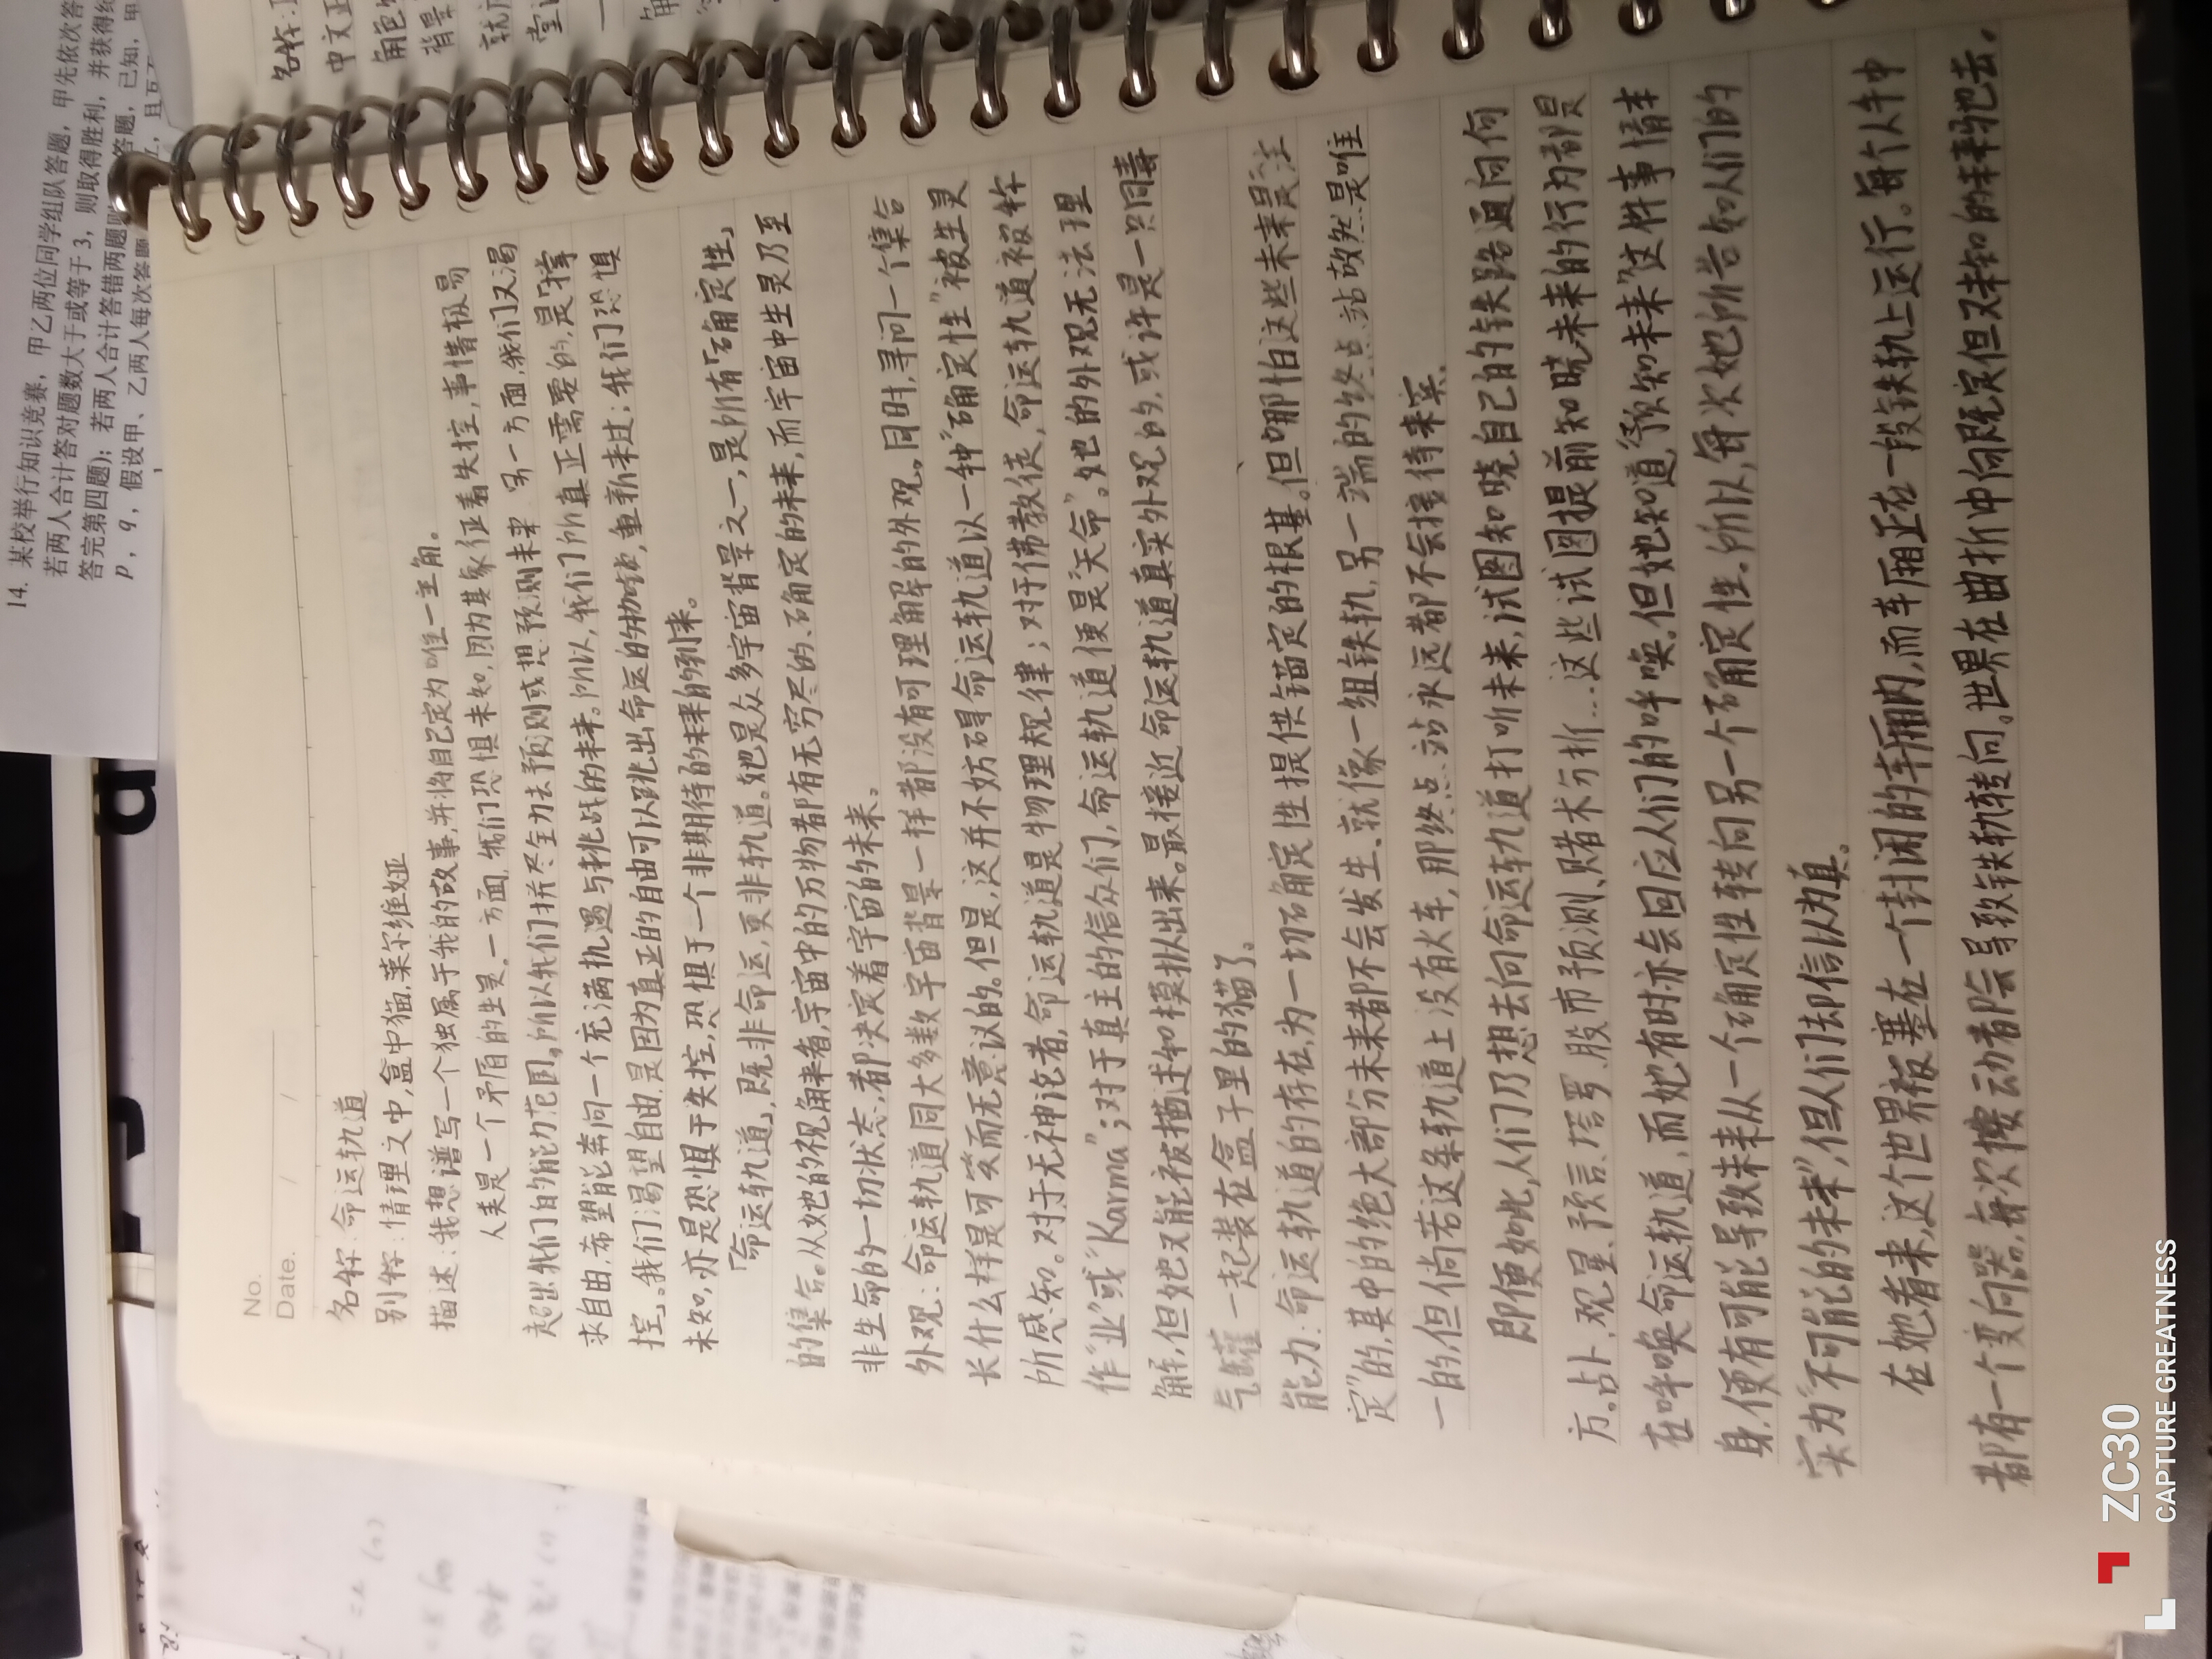 14. 某校举行知识竞赛，甲乙两位同学组队答题，甲先依次答
若两人合计答对题数大于或等于 3，则取得胜利，并获得
答完第四题)；若两人合计答错两题
p，q，假设甲、乙两人每次答题
答题，已知，甲
No.
Date. / /
名称:命运轨道
别称:情理之中,盒中猫,莱尔维娅
描述:我想谱写一个独属于我的故事,并将自己定为唯一主角。
人类是一个矛盾的生灵。一方面,我们恐惧未知,因为其象征着失控,事情极易
超出我们的能力范围,所以我们拼尽全力去预测或想预测未来 另一方面,我们又渴
求自由,希望能奔向一个充满机遇与挑战的未来。所以,我们所真正需要的,是「掌
控」。我们渴望自由,是因为真正的自由可以跳出命运的枷锁,重新来过;我们恐惧
未知,亦是恐惧于失控,恐惧于一个非期待的未来的到来。
「命运轨道」,既非命运,更非轨道。她是众多宇宙背景之一,是所有「确定性」
的集合。从她的视角来看,宇宙中的万物都有无穷尽的、确定的未来,而宇宙中生灵乃至
非生命的一切状态,都决定着宇宙的未来。
外观:命运轨道同大多数宇宙背景一样都没有可理解的外观。同时,寻问一个集合
长什么样是可笑而无意议的。但是,这并不妨碍命运轨道以一种“确定性”被生灵
所感知。对于无神论者,命运轨道是物理规律;对于佛教徒,命运轨道被称
作“业”或“Karma”;对于真主的信众们,命运轨道便是“天命”。她的外观无法理
解,但她又能被描述和模拟出来。最接近命运轨道真实外观的,或许是一只同毒
气罐一起装在盒子里的猫了。
能力:命运轨道的存在,为一切确定性提供锚定的根基。但哪怕这些未来是“注
定”的,其中的绝大部分未来都不会发生、就像一组铁轨,另一端的终点站故然是唯
一的,但倘若这条轨道上没有火车,那终点站永远都不会接待来宾。
即便如此,人们乃想去向命运轨道打听未来,试图知晓自己的铁路通向何
方。占卜、观星、预言、塔罗、股市预测、赌术分折...这些试图提前知晓未来的行为都是
在呼唤命运轨道,而她有时亦会回应人们的呼唤。但她知道,“预知未来”这件事情本
身,便有可能导致未来从一个确定性转向另一个确定性。所以,每次她所告知人们的
实为“不可能的未来”,但人们去却信以为真。
在她看来,这个世界被塞在一个封闭的车厢内,而车厢正在一段铁轨上运行。每个人手中
都有一个变向器,每次搬动都会导致铁轨转向。世界在曲折中向既定但又未知的未来驰去。
名称:
中文正
角色
背景
ZC30
CAPTURE GREATNESS